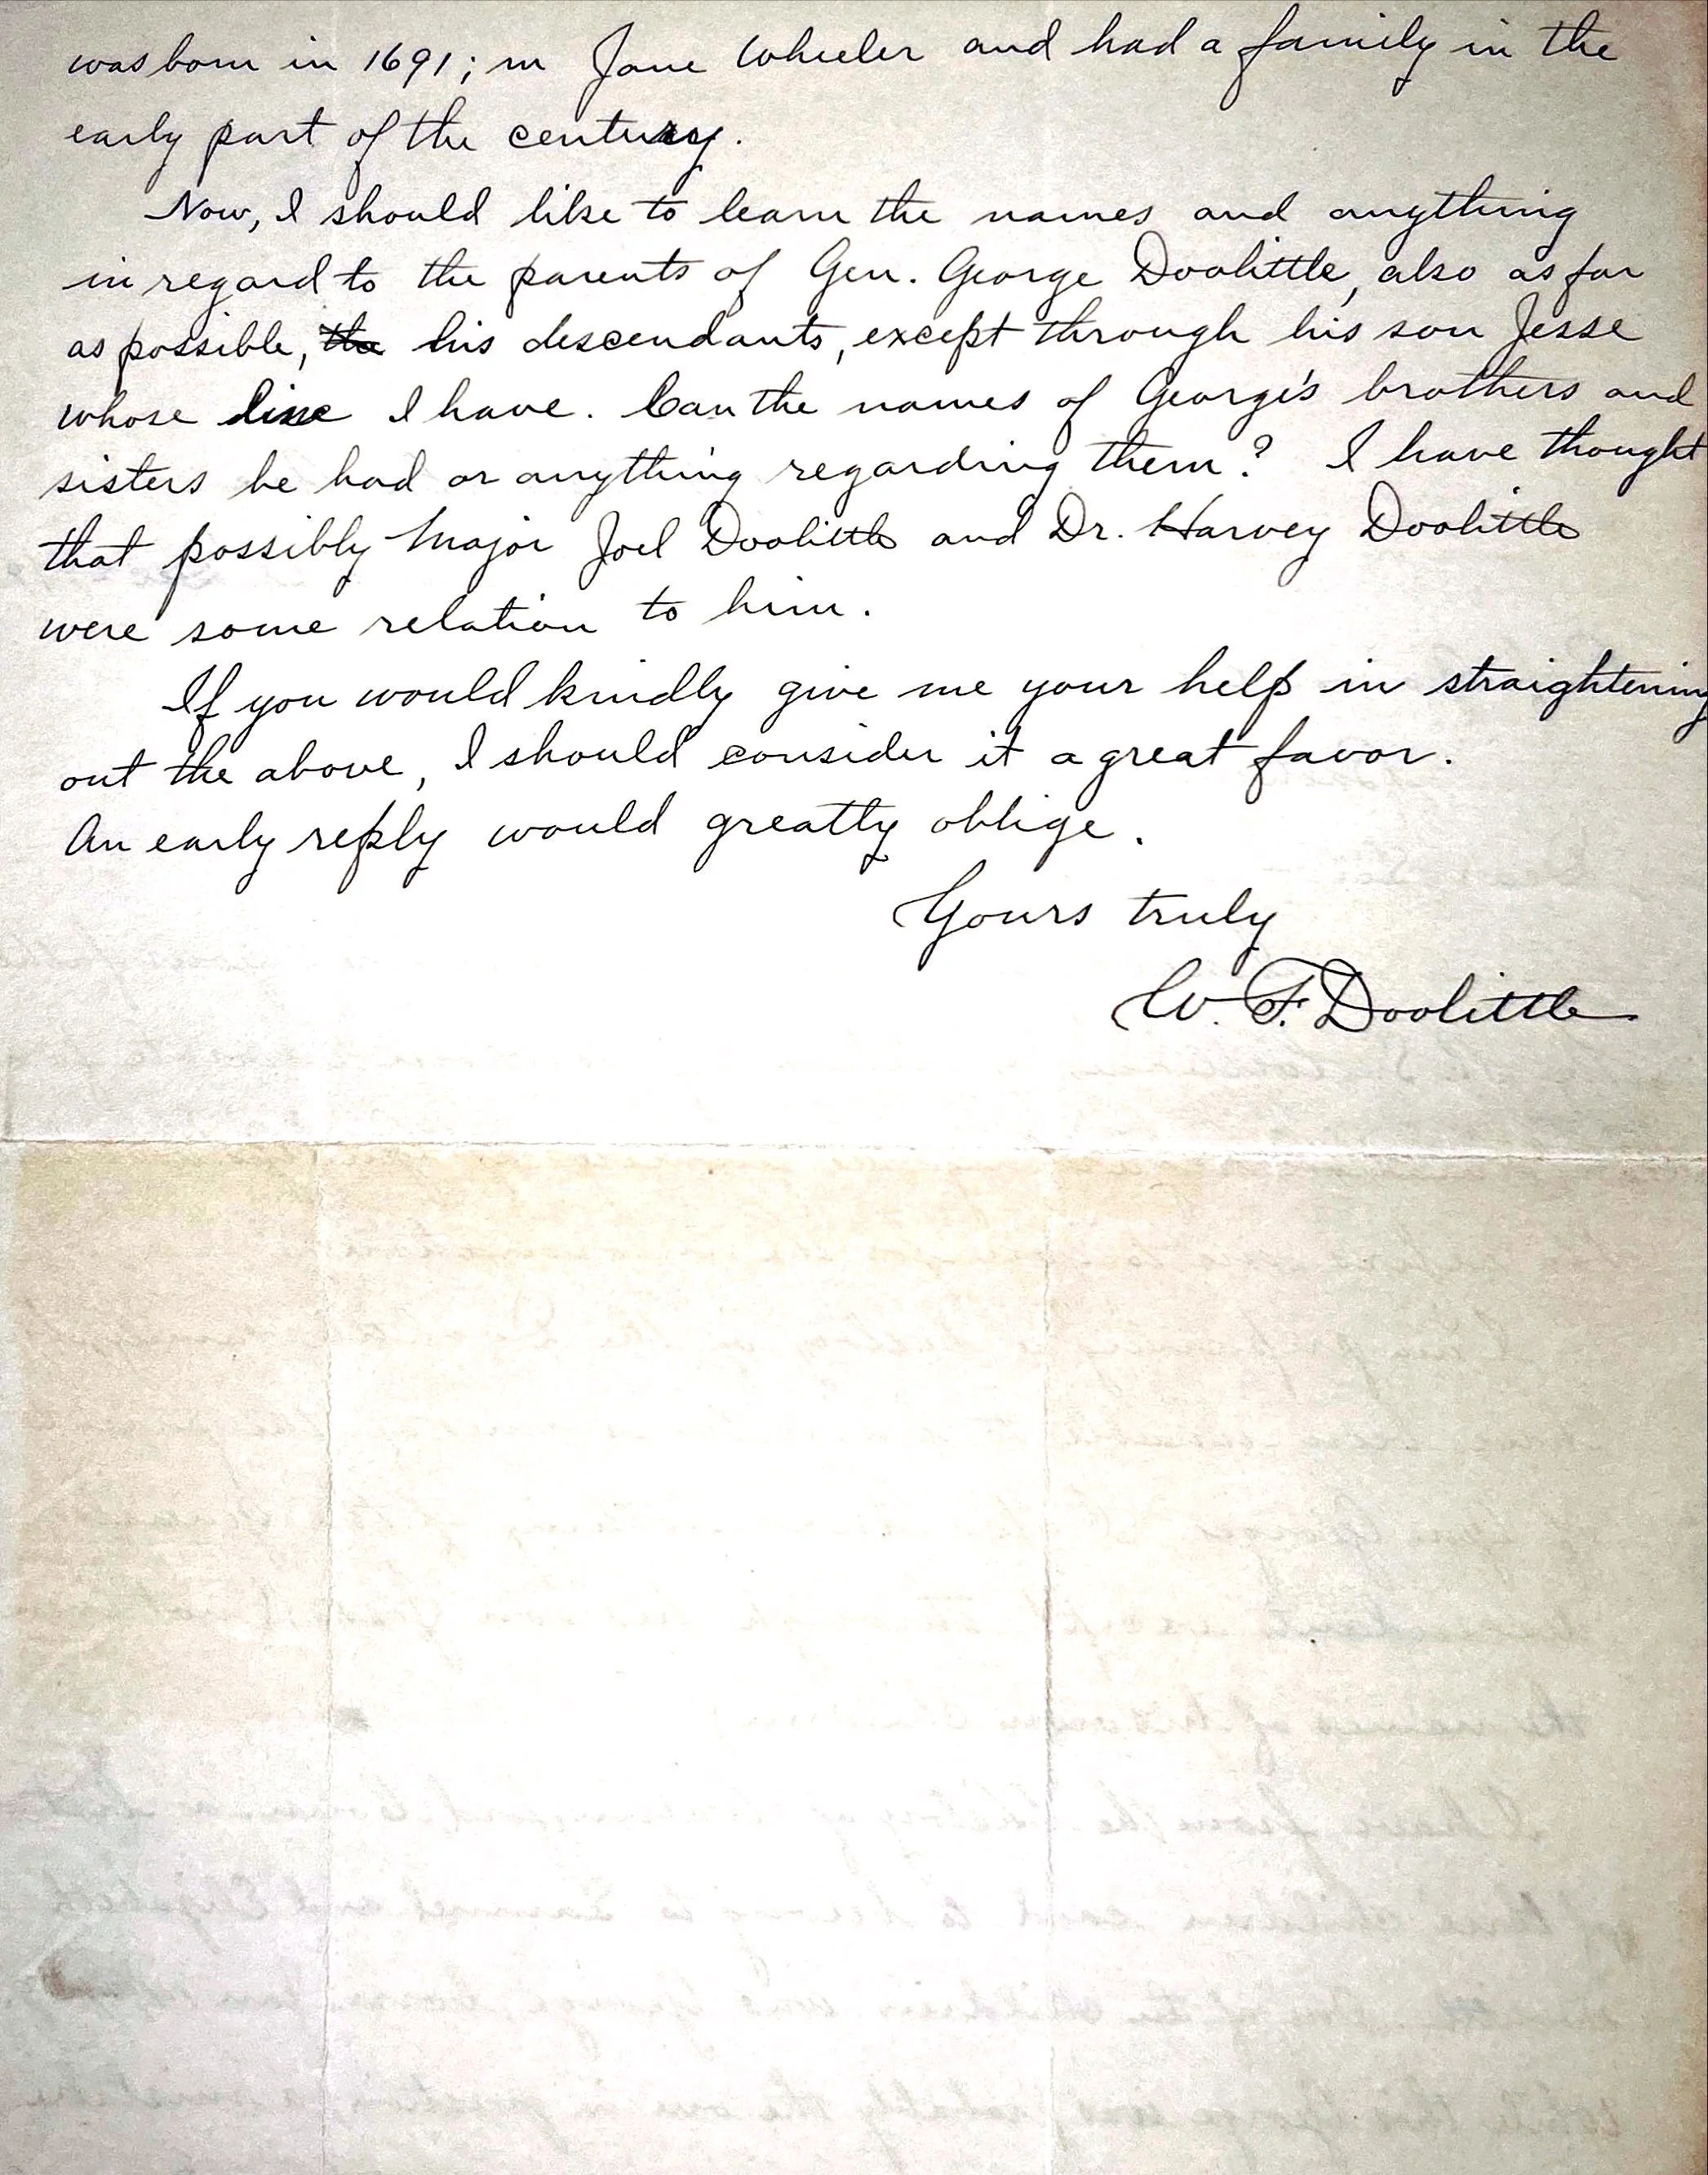 was born in 1691; m Jane Wheeler and had a family in the
early part of the century.
Now, I should like to learn the names and anything
in regard to the parents of Gen. George Doolittle, also as far
as possible, the his descendants, except through his son Jesse
whose line I have. Can the names of George's brothers and
sisters be had or anything regarding them? I have thought
that possibly Major Joel Doolittle and Dr. Harvey Doolittle
were some relation to him.
If you would kindly give me your help in straightening
out the above, I should consider it a great favor.
An early reply would greatly oblige.
Yours truly
W. F. Doolittle